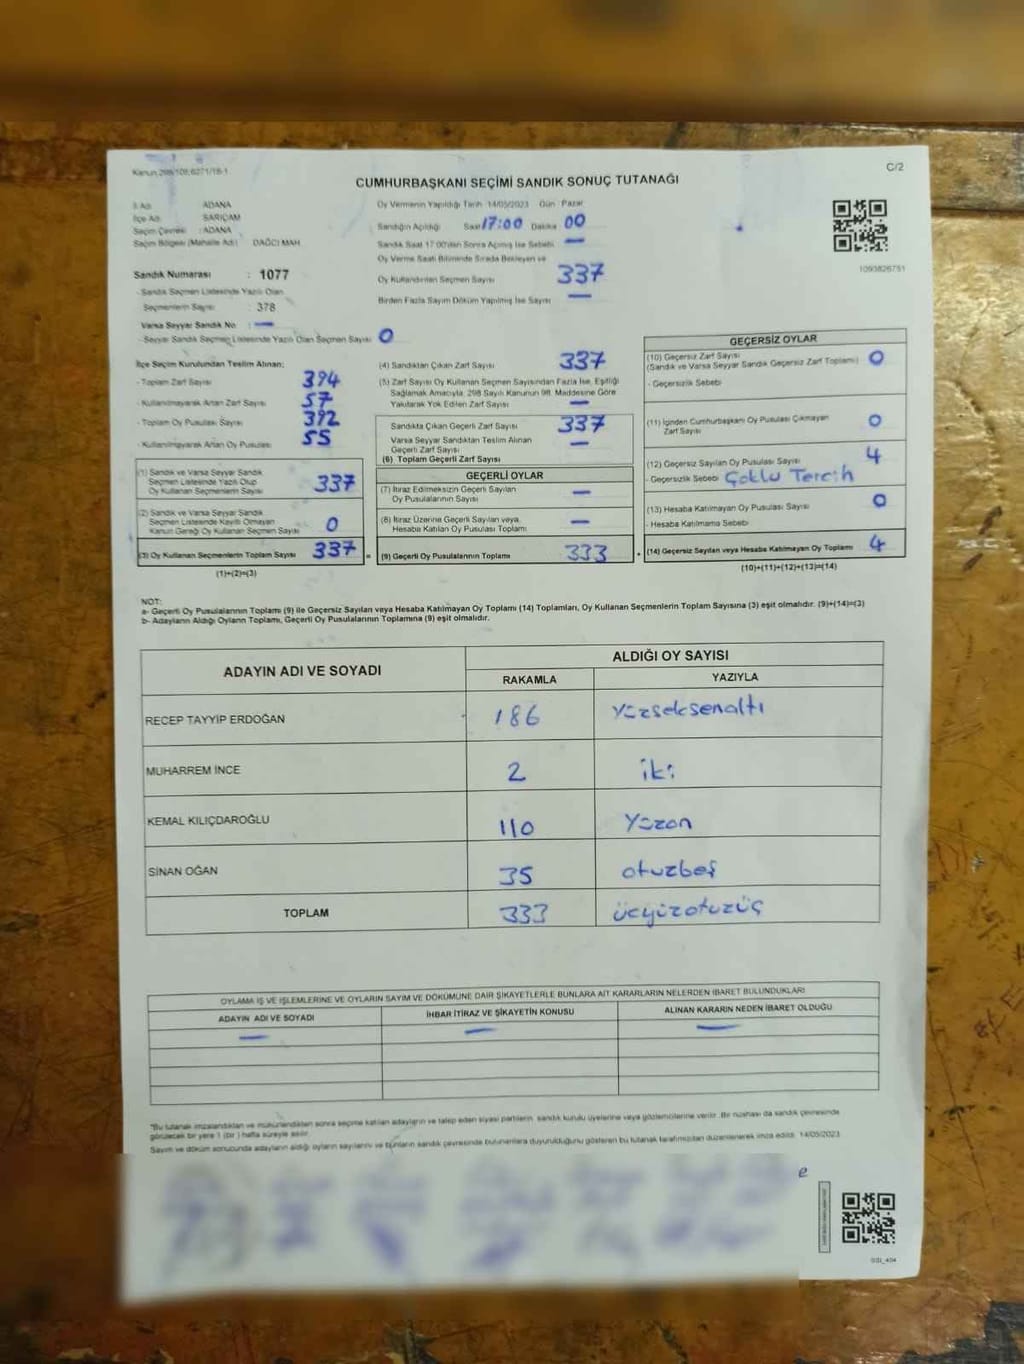 Kanun 298/108,6271/18-1
C/2
CUMHURBAŞKANI SEÇİMİ SANDIK SONUÇ TUTANAĞI
İl Adı ADANA
İlçe Adı SARIÇAM
Seçim Çevresi : ADANA
Seçim Bölgesi (Mahalle Adı) DAĞCI MAH
Sandık Numarası : 1077
- Sandık Seçmen Listesinde Yazılı Olan
Seçmenlerin Sayısı : 378
Varsa Seyyar Sandık No : —
- Seyyar Sandık Seçmen Listesinde Yazılı Olan Seçmen Sayısı 0
Oy Vermenin Yapıldığı Tarih 14/05/2023 Gün Pazar
Sandığın Açıldığı Saat 17:00 Dakika 00
Sandık Saat 17:00'den Sonra Açılmış İse Sebebi —
Oy Verme Saati Bitiminde Sırada Bekleyen ve
Oy Kullandırılan Seçmen Sayısı 337
Birden Fazla Sayım Döküm Yapılmış İse Sayısı —
1093826751
İlçe Seçim Kurulundan Teslim Alınan;
- Toplam Zarf Sayısı 394
- Kullanılmayarak Artan Zarf Sayısı 57
- Toplam Oy Pusulası Sayısı 392
- Kullanılmayarak Artan Oy Pusulası 55
(1) Sandık ve Varsa Seyyar Sandık
Seçmen Listesinde Yazılı Olup
Oy Kullanan Seçmenlerin Sayısı 337
(2) Sandık ve Varsa Seyyar Sandık
Seçmen Listesinde Kayıtlı Olmayan
Kanun Gereği Oy Kullanan Seçmen Sayısı 0
(3) Oy Kullanan Seçmenlerin Toplam Sayısı 337 =
(1)+(2)=(3)
(4) Sandıktan Çıkan Zarf Sayısı 337
(5) Zarf Sayısı Oy Kullanan Seçmen Sayısından Fazla İse, Eşitliği
Sağlamak Amacıyla, 298 Sayılı Kanunun 98. Maddesine Göre
Yakılarak Yok Edilen Zarf Sayısı —
Sandıkta Çıkan Geçerli Zarf Sayısı 337
Varsa Seyyar Sandıktan Teslim Alınan
Geçerli Zarf Sayısı —
(6) Toplam Geçerli Zarf Sayısı
GEÇERLİ OYLAR
(7) İtiraz Edilmeksizin Geçerli Sayılan
Oy Pusulalarının Sayısı —
(8) İtiraz Üzerine Geçerli Sayılan veya
Hesaba Katılan Oy Pusulası Toplamı —
(9) Geçerli Oy Pusulalarının Toplamı 333 +
GEÇERSİZ OYLAR
(10) Geçersiz Zarf Sayısı
(Sandık ve Varsa Seyyar Sandık Geçersiz Zarf Toplamı) 0
- Geçersizlik Sebebi
(11) İçinden Cumhurbaşkanı Oy Pusulası Çıkmayan
Zarf Sayısı 0
(12) Geçersiz Sayılan Oy Pusulası Sayısı 4
- Geçersizlik Sebebi Çoklu Tercih
(13) Hesaba Katılmayan Oy Pusulası Sayısı 0
- Hesaba Katılmama Sebebi
(14) Geçersiz Sayılan veya Hesaba Katılmayan Oy Toplamı 4
(10)+(11)+(12)+(13)=(14)
NOT:
a- Geçerli Oy Pusulalarının Toplamı (9) ile Geçersiz Sayılan veya Hesaba Katılmayan Oy Toplamı (14) Toplamları, Oy Kullanan Seçmenlerin Toplam Sayısına (3) eşit olmalıdır. (9)+(14)=(3)
b- Adayların Aldığı Oyların Toplamı, Geçerli Oy Pusulalarının Toplamına (9) eşit olmalıdır.
ADAYIN ADI VE SOYADI
ALDIĞI OY SAYISI
RAKAMLA YAZIYLA
RECEP TAYYİP ERDOĞAN 186 Yüzseksenaltı
MUHARREM İNCE 2 iki
KEMAL KILIÇDAROĞLU 110 Yüzon
SİNAN OĞAN 35 otuzbeş
TOPLAM 333 üçyüzotuzüç
OYLAMA İŞ VE İŞLEMLERİNE VE OYLARIN SAYIM VE DÖKÜMÜNE DAİR ŞİKAYETLERLE BUNLARA AİT KARARLARIN NELERDEN İBARET BULUNDUKLARI
ADAYIN ADI VE SOYADI İHBAR İTİRAZ VE ŞİKAYETİN KONUSU ALINAN KARARIN NEDEN İBARET OLDUĞU
— — —
"Bu tutanak imzalandıktan ve mühürlendikten sonra seçime katılan adayların ve talep eden siyasi partilerin, sandık kurulu üyelerine veya gözlemcilerine verilir. Bir nüshası da sandık çevresinde
görülecek bir yere 1 (bir) hafta süreyle asılır.
Sayım ve döküm sonucunda adayların aldığı oyların sayılarını ve bunların sandık çevresinde bulunanlara duyurulduğunu gösteren bu tutanak tarafımızdan düzenlenerek imza edildi. 14/05/2023